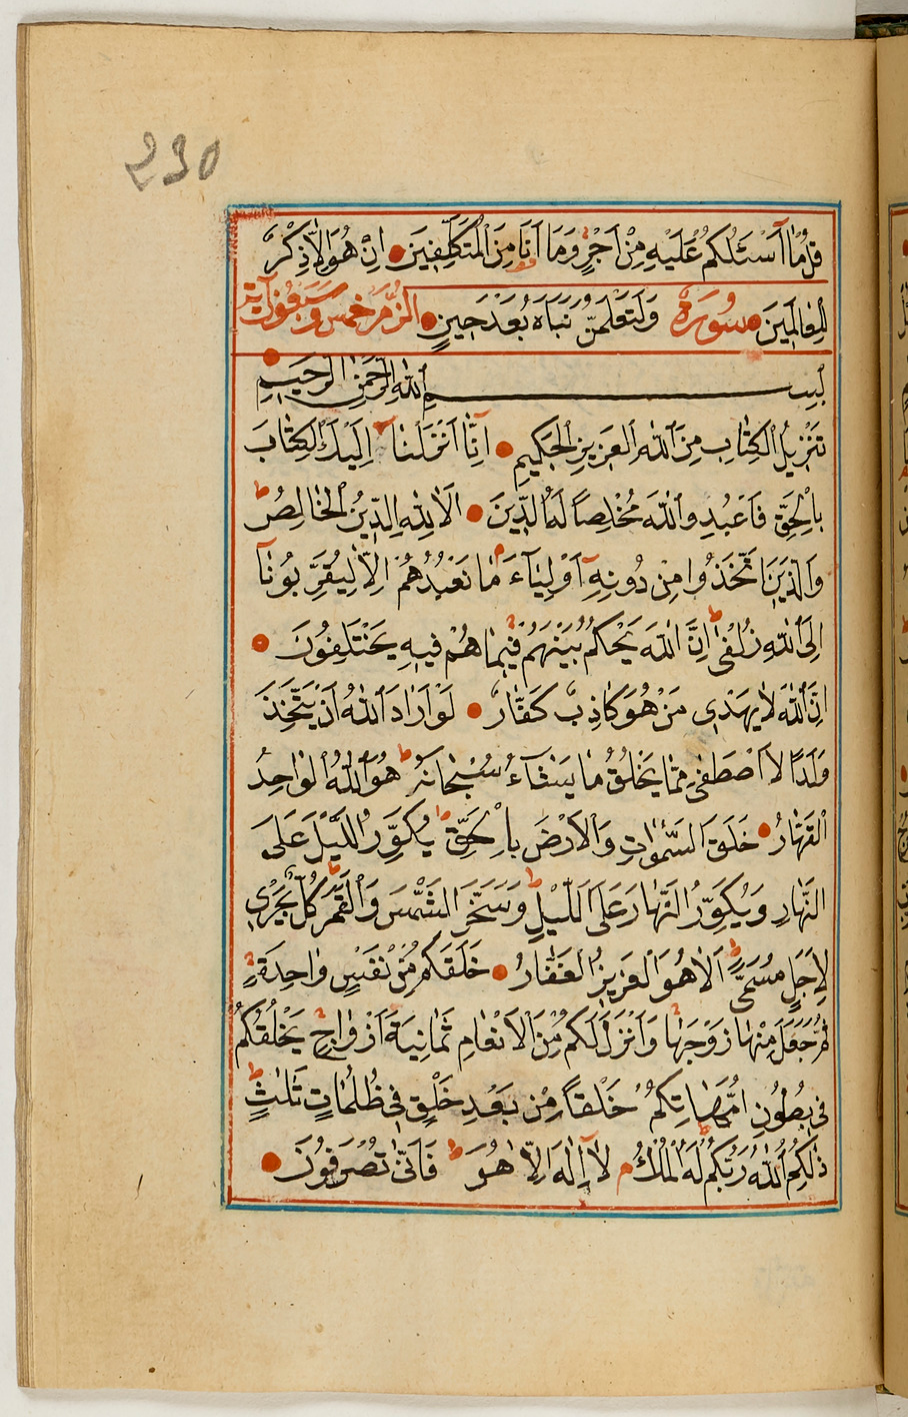 230
قُلْ مَٓا اَسْـَٔلُكُمْ عَلَيْهِ مِنْ اَجْرٍ وَمَٓا اَنَا۬ مِنَ الْمُتَكَلِّفِينَ اِنْ هُوَ اِلَّا ذِكْرٌ
لِلْعَالَمِينَ وَلَتَعْلَمُنَّ نَبَاَهُ بَعْدَ حِينٍ سُورَةُ الزُّمَرِ خمس وسبعون آية
بِسْمِ اللهِ الرَّحْمٰنِ الرَّحِيمِ
تَنْزِيلُ الْكِتَابِ مِنَ اللهِ الْعَزِيزِ الْحَكِيمِ اِنَّٓا اَنْزَلْنَٓا اِلَيْكَ الْكِتَابَ
بِالْحَقِّ فَاعْبُدِ اللهَ مُخْلِصًا لَهُ الدِّينَ اَلَا لِلّٰهِ الدِّينُ الْخَالِصُ ط
وَالَّذِينَ اتَّخَذُوا مِنْ دُونِهِٓ اَوْلِيَٓاءَ م مَا نَعْبُدُهُمْ اِلَّا لِيُقَرِّبُونَٓا
اِلَى اللهِ زُلْفٰى ط اِنَّ اللهَ يَحْكُمُ بَيْنَهُمْ فِيمَا هُمْ فِيهِ يَخْتَلِفُونَ
اِنَّ اللهَ لَا يَهْدِي مَنْ هُوَ كَاذِبٌ كَفَّارٌ لَوْ اَرَادَ اللهُ اَنْ يَتَّخِذَ
وَلَدًا لَاصْطَفٰى مِمَّا يَخْلُقُ مَا يَشَٓاءُ سُبْحَانَهُ ط هُوَ اللهُ الْوَاحِدُ
الْقَهَّارُ خَلَقَ السَّمٰوَاتِ وَالْاَرْضَ بِالْحَقِّ يُكَوِّرُ اللَّيْلَ عَلَى
النَّهَارِ وَيُكَوِّرُ النَّهَارَ عَلَى اللَّيْلِ ط وَسَخَّرَ الشَّمْسَ وَالْقَمَرَ ط كُلٌّ يَجْرِي
لِاَجَلٍ مُسَمًّى ط اَلَا هُوَ الْعَزِيزُ الْغَفَّارُ خَلَقَكُمْ مِنْ نَفْسٍ وَاحِدَةٍ
ثُمَّ جَعَلَ مِنْهَا زَوْجَهَا وَاَنْزَلَ لَكُمْ مِنَ الْاَنْعَامِ ثَمَانِيَةَ اَزْوَاجٍ يَخْلُقُكُمْ
فِي بُطُونِ اُمَّهَاتِكُمْ خَلْقًا مِنْ بَعْدِ خَلْقٍ فِي ظُلُمَاتٍ ثَلٰثٍ ط
ذٰلِكُمُ اللهُ رَبُّكُمْ لَهُ الْمُلْكُ م لَٓا اِلٰهَ اِلَّا هُوَ ط فَاَنّٰى تُصْرَفُونَ